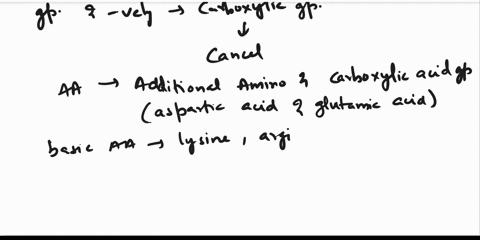 gp. & -vely → Carboxylic gp.
↓
Cancel
AA → Additional Amino & carboxylic acid gp
(aspartic acid & glutamic acid)
basic AA → lysine, argi